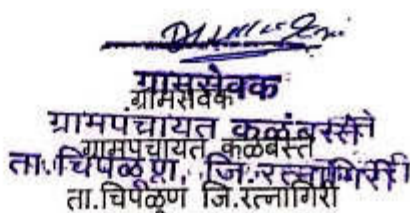 ग्रामसेवक
ग्रामसेवक
ग्रामपंचायत कळंबस्ते
ग्रामपंचायत कळंबस्ते
ता.चिपळूण, जि.रत्नागिरी
ता.चिपळूण जि.रत्नागिरी